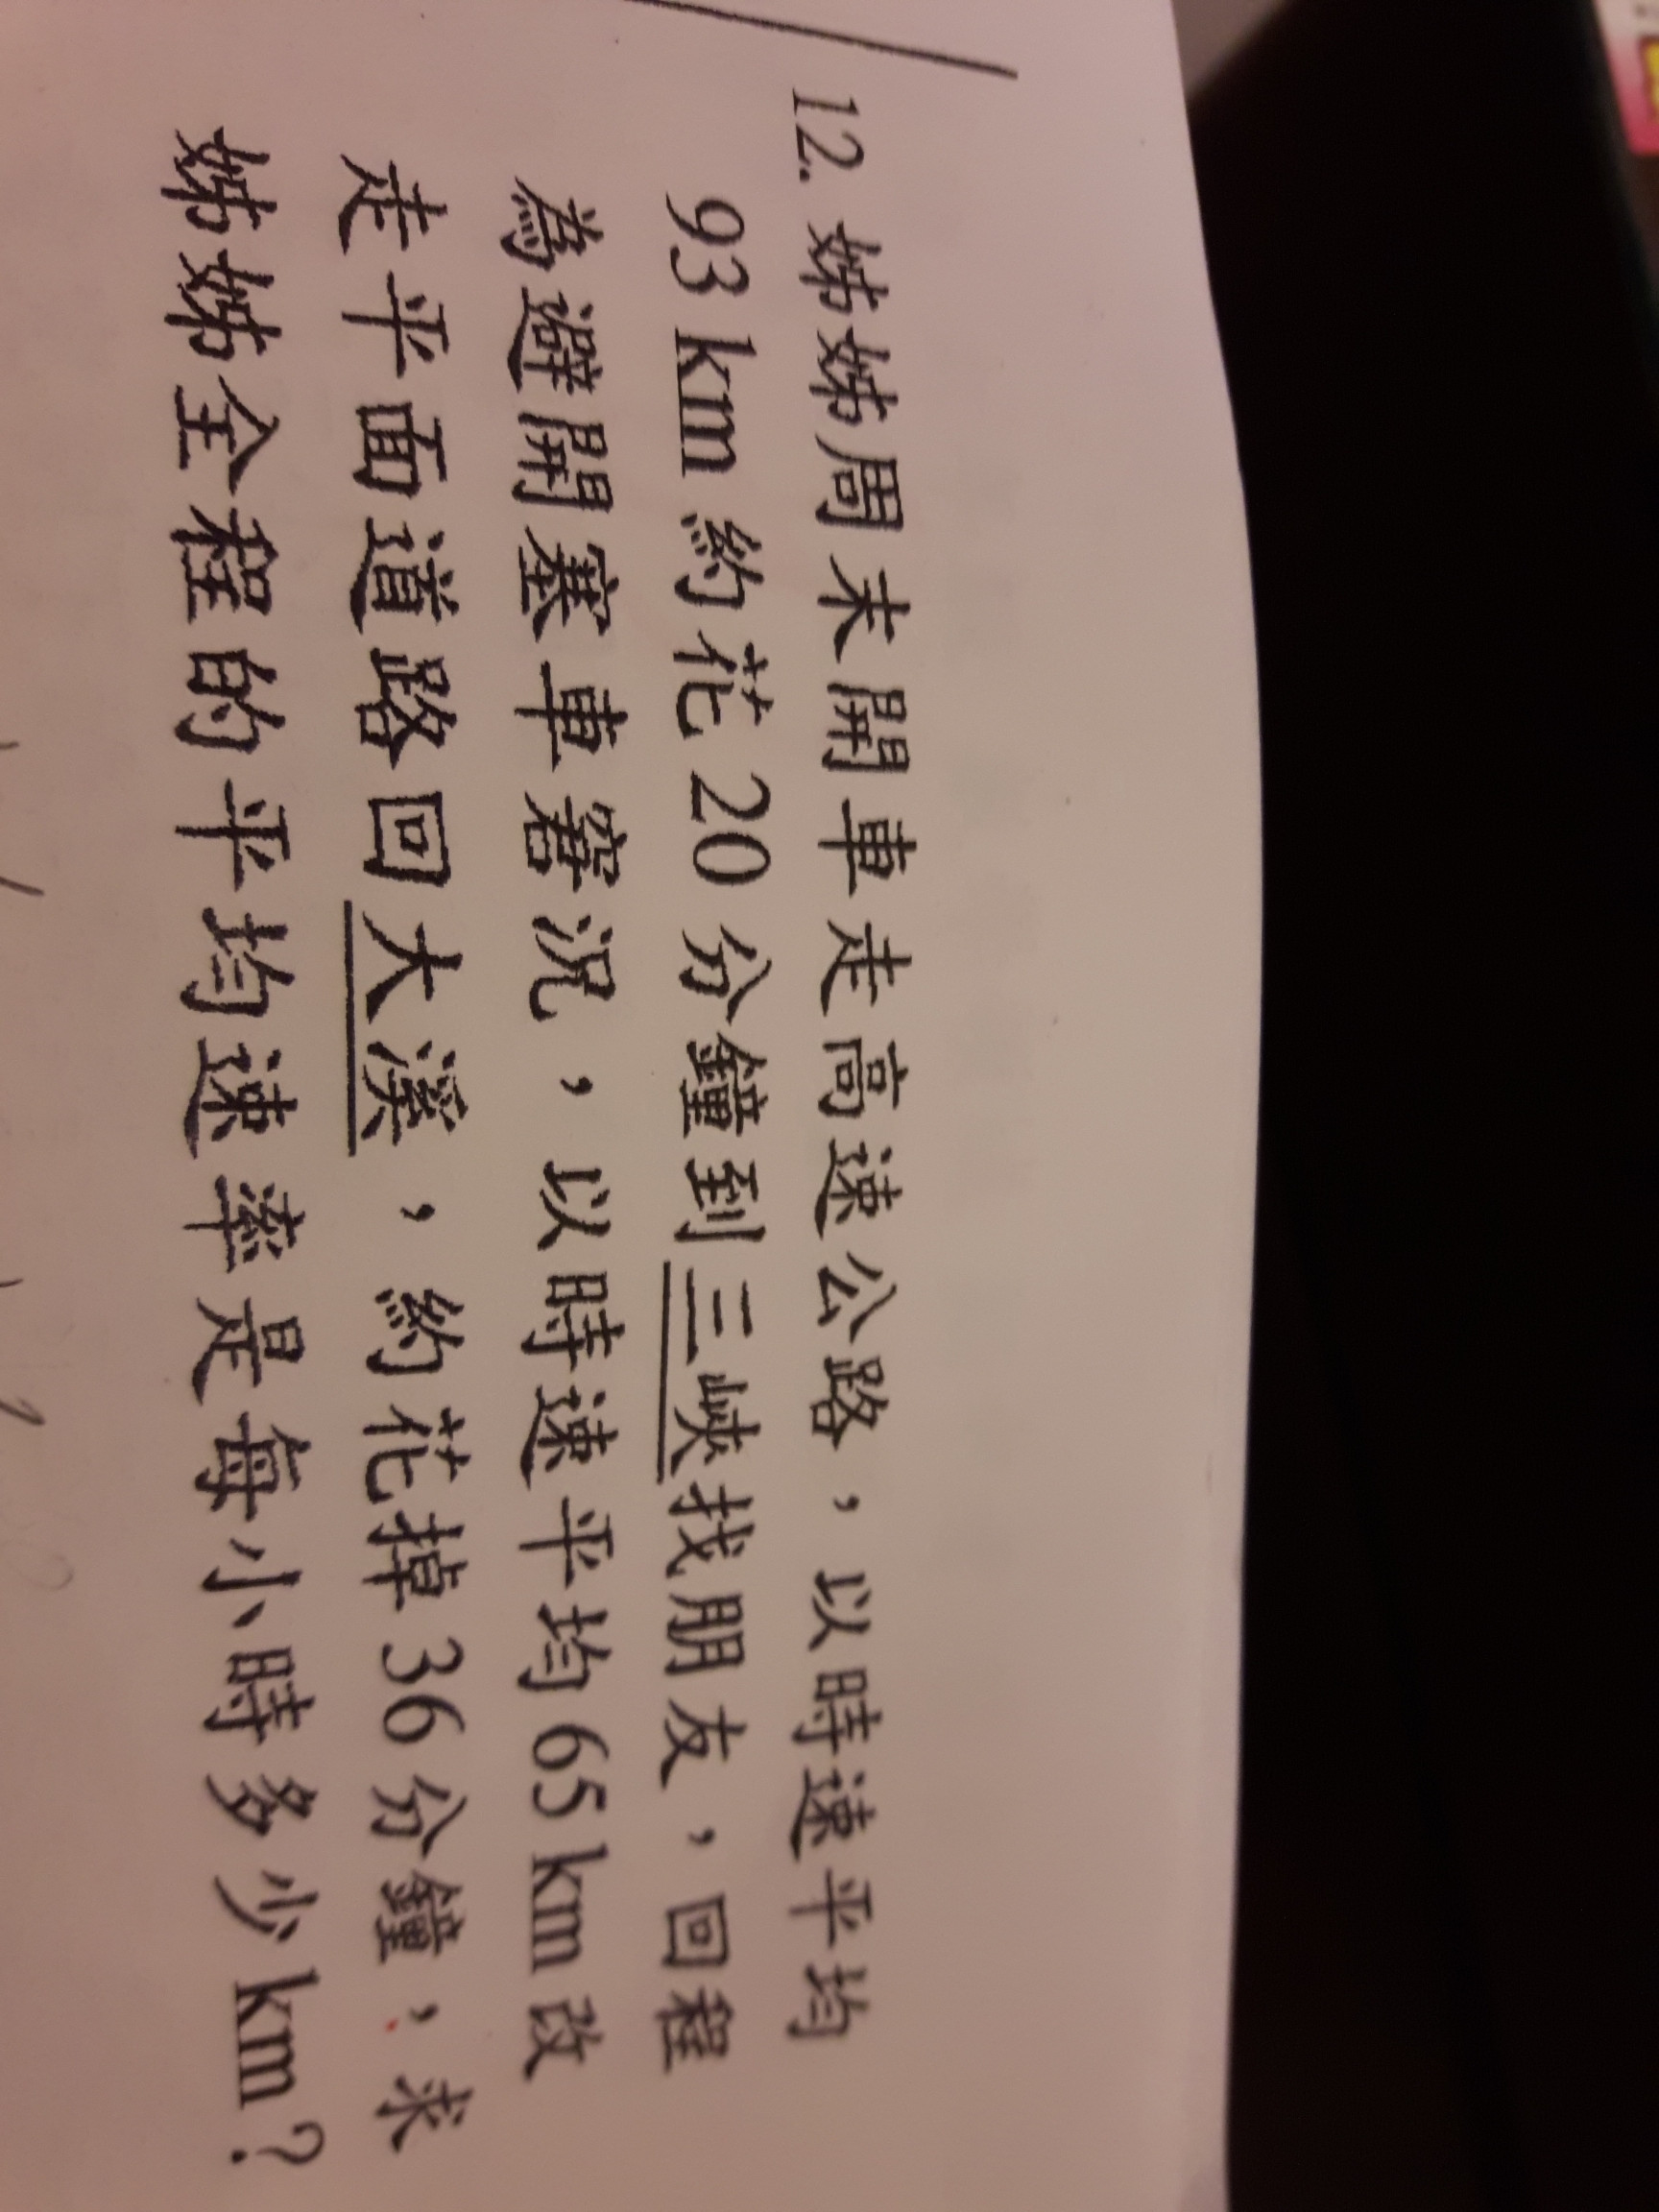 12. 姊姊周末開車走高速公路，以時速平均
93 km 約花 20 分鐘到三峽找朋友，回程
為避開塞車窘況，以時速平均 65 km 改
走平面道路回大溪，約花掉 36 分鐘，求
姊姊全程的平均速率是每小時多少 km？